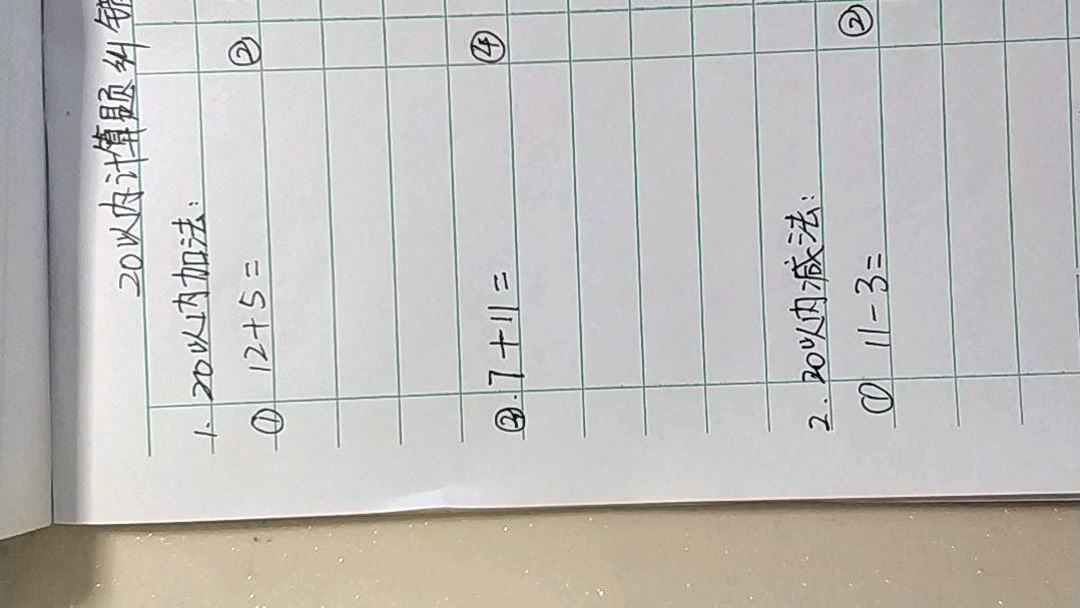 20以内计算题纠错
1. 20以内加法:
① 12+5= ②
③. 7+11= ④
2. 20以内减法:
① 11-3= ②